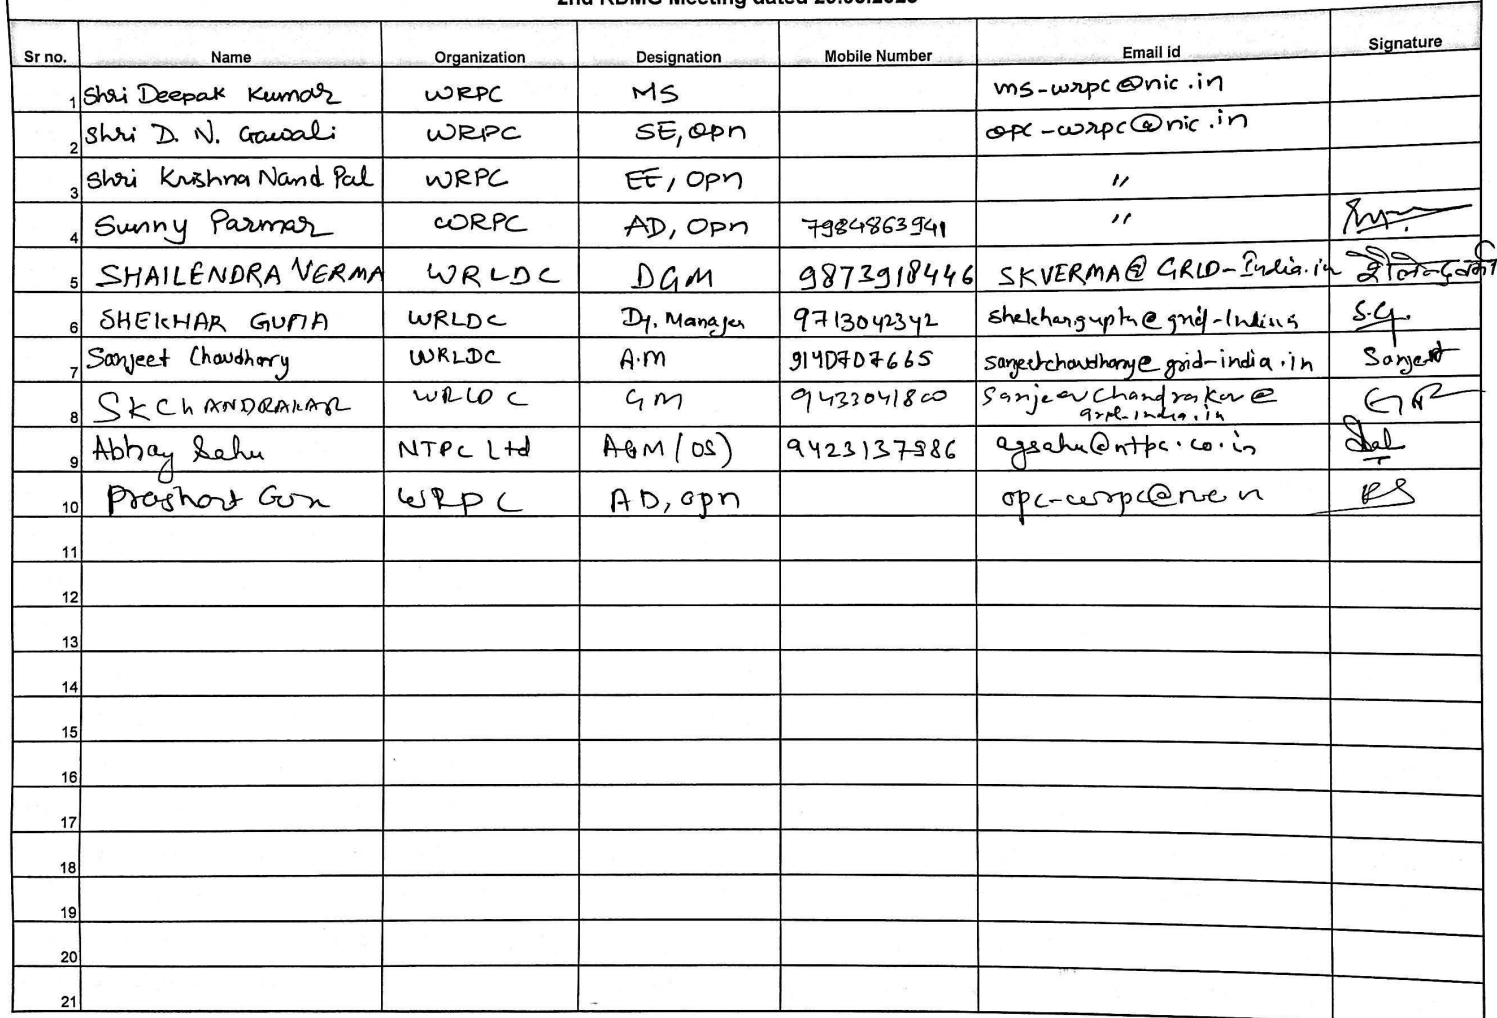 Sr no. Name Organization Designation Mobile Number Email id Signature
1 Shri Deepak Kumar WRPC MS ms-wrpc@nic.in
2 Shri D. N. Gawali WRPC SE, opn opc-wrpc@nic.in
3 Shri Krishna Nand Pal WRPC EE, opn "
4 Sunny Parmar WRPC AD, opn 7984863941 "
5 SHAILENDRA VERMA WRLDC DGM 9873918446 SKVERMA@GRID-India.in
6 SHEKHAR GUPTA WRLDC Dy. Manager 9713042342 S.G.
7 Sanjeet Choudhary WRLDC A.M 9140707665 sanjeetchoudhary@grid-india.in Sanjeet
8 SK ChANDRAKAR WRLDC GM 9433041800 Sanjeev Chandrakar@
grid-india.in
9 Abhay Sahu NTPC Ltd AGM (OS) 9423137986 agsahu@ntpc.co.in
10 WRPC AD, opn
11
12
13
14
15
16
17
18
19
20
21